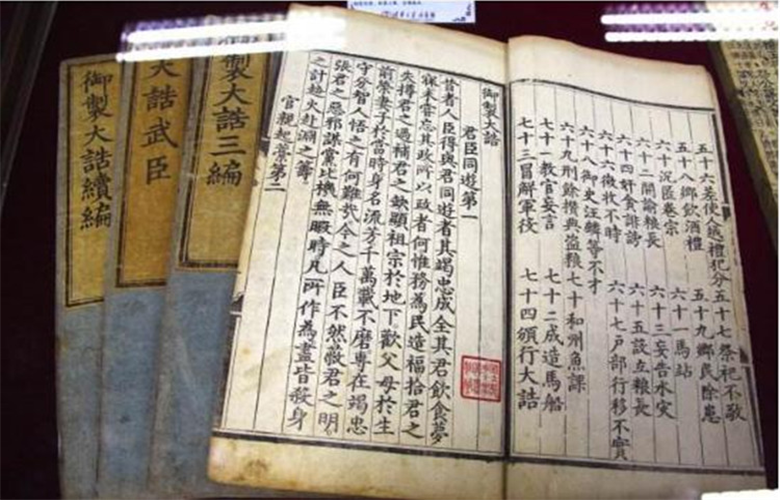 五十六差使人越禮犯分 五十七祭祀不敬
五十八鄉飲酒禮 五十九鄉民除患
六十沉匿卷宗 六十一馬站
六十二開諭粮長 六十三妄告水灾
六十四奸貪誹謗 六十五設立粮長
六十六徵收不時 六十七户部行移不實
六十八御史汪麟等不才
六十九刑餘攢典盗粮 七十和州魚課
七十一教官妄言 七十二成造馬船
七十三冒解軍役 七十四頒行大誥
御製大誥
君臣同遊第一
昔者人臣得與君同遊者其竭忠成全其君飲食夢
寐未嘗忘其政所以政者何惟務為民造福拾君之
失撙君之過補君之缺顯祖宗於地下歡父母於生
前榮妻子於當時身名流芳千萬載不磨專在竭忠
守分智人悟之有何難哉今之人臣不然蔽君之明
張君之惡邪謀黨比機無暇時凡所作為盡皆殺身
之計趨火赴淵之筭
官親起藁第二
御製大誥三編
大誥武臣
御製大誥續編